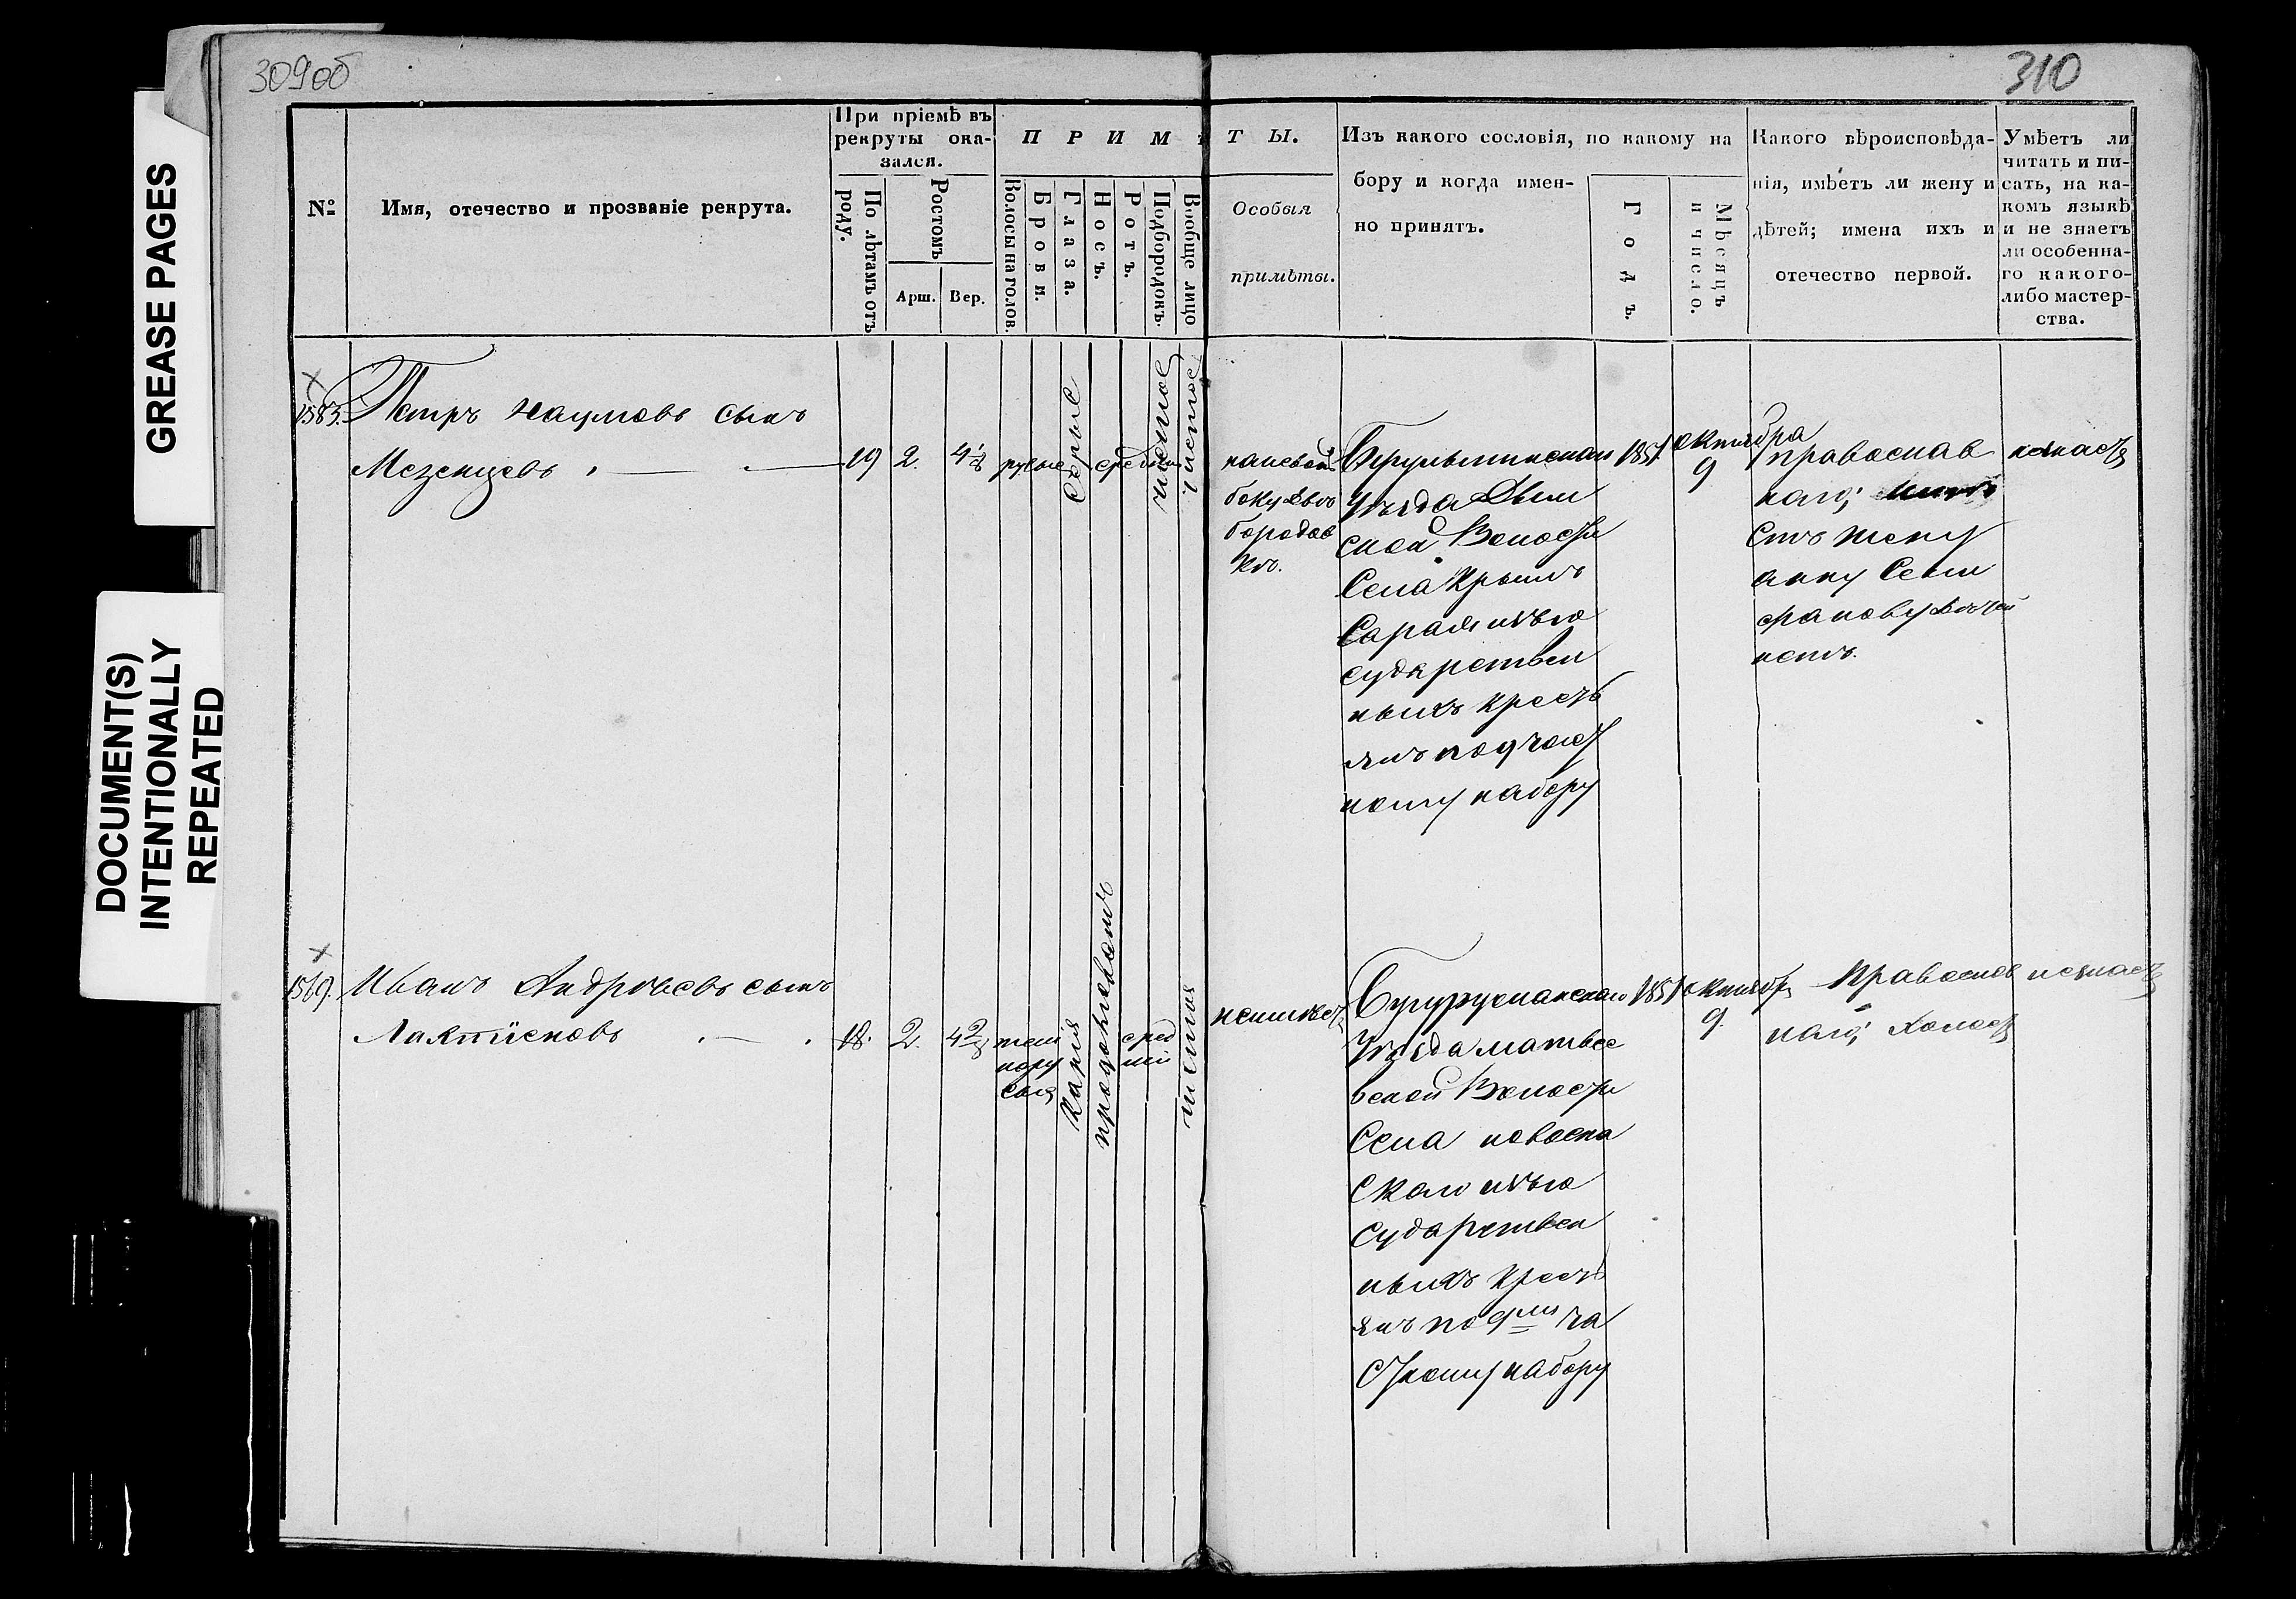 309об
310
GREASE PAGES
DOCUMENT(S)
INTENTIONALLY
REPEATED
№
Имя, отечество и прозваніе рекрута.
При пріемѣ въ
рекруты ока-
зался.
По лѣтамъ отъ
роду.
Ростомъ
Арш.
Вер.
ПРИМѢТЫ.
Волосы на голов.
Брови.
Глаза.
Носъ.
Ротъ.
Подбородокъ.
Вообще лицо
Особыя
примѣты.
Изъ какого сословія, по какому на
бору и когда имен-
но принятъ.
Годъ.
Мѣсяцъ
и число.
Какого вѣроисповѣда-
нія, имѣетъ ли жену и
дѣтей; имена ихъ и
отечество первой.
Умѣетъ ли
читать и пи-
сать, на ка-
комъ языкѣ
и не знаетъ
ли особенна-
го какого-
либо мастер-
ства.
1583. Петръ Наумовъ сынъ
Мезенцевъ
19 2. 4 1/8 русые серые средн чистое
на левом
боку две
бородав
ки.
Бугульминскаго
Уѣзда
ской Волости
Села Крымъ
Сарая изъ го
сударствен
ныхъ кресть
янъ по 9 част
ному набору
1851 октября
9
православ
наго;
етъ жену
анну Сели
фанову детей
нетъ.
незнаетъ
1569. Иванъ Андрѣевъ сынъ
Лактіоновъ
18. 2. 4 2/8 темно
ру
сыя
карія
продолговатъ
сред
ній
неимѣетъ
Бугурусланскаго
Уѣзда матвее
вской Волости
Села новоспа
скаго изъ го
сударствен
ныхъ кресть
янъ по 9му ча
стному набору
1851 октября
9.
Православ
наго; холостъ
незнаетъ